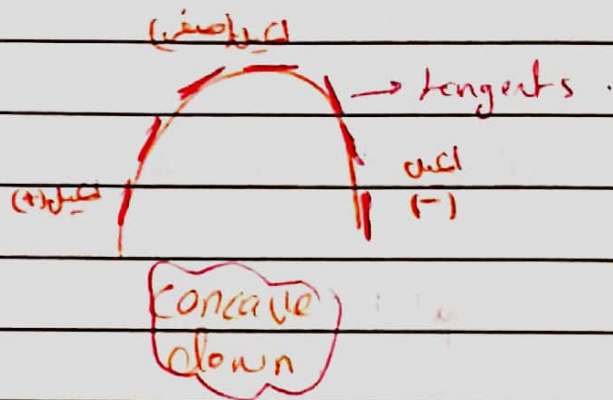 الميل (صفر)
→ tangents
الميل (+)
الميل
(-)
concave
down